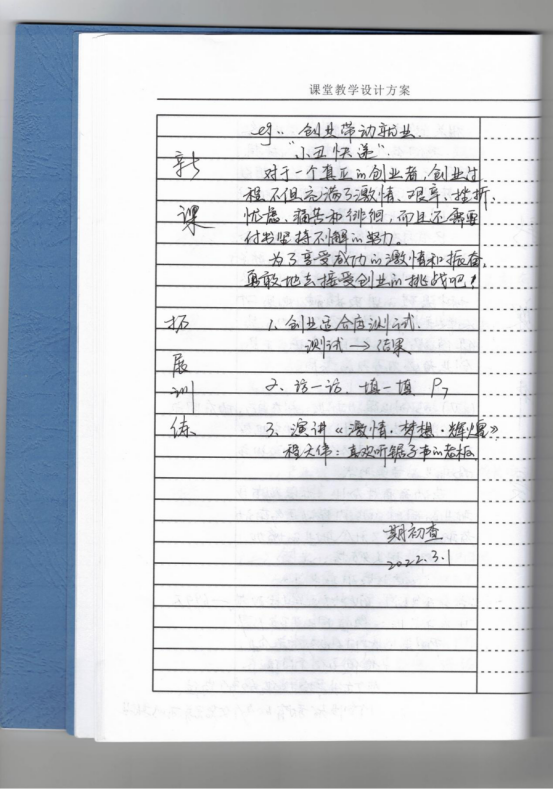 课堂教学设计方案
eg: 创业带动就业.
"小丑快递".
新 对于一个真正的创业者,创业过
程不但充满了激情、艰辛、挫折、
课 忧虑、痛苦和徘徊,而且还需要
付出坚持不懈的努力。
为了享受成功的激情和振奋,
勇敢地去接受创业的挑战吧!
拓 1、创业适合度测试.
测试→结果
展
训 2、访一访、填一填 P7
练 3、演讲《激情·梦想·辉煌》
程天伟:喜欢听锯子声的老板
期初查
2022.3.1